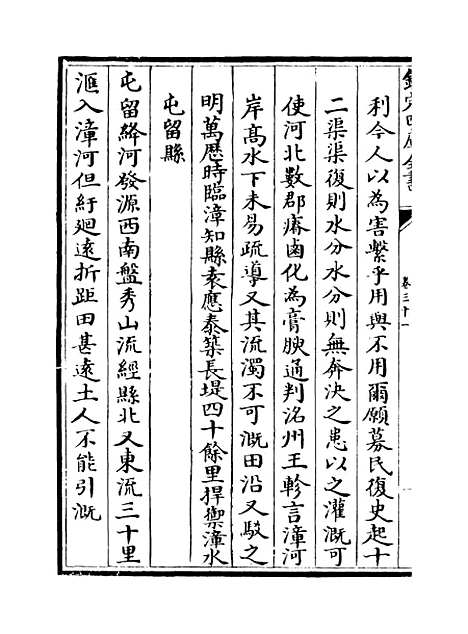 欽定四庫全書
卷三十一
利今人以為害繫乎用與不用爾願募民復史起十
二渠渠復則水分水分則無奔決之患以之灌溉可
使河北數郡瘠鹵化為膏腴通判洺州王軫言漳河
岸髙水下未易疏導又其流濁不可溉田沿又駁之
明萬厯時臨漳知縣袁應泰築長堤四十餘里捍禦漳水
屯留縣
屯留絳河發源西南盤秀山流經縣北又東流三十里
滙入漳河但紆廻遠折距田甚遠土人不能引溉